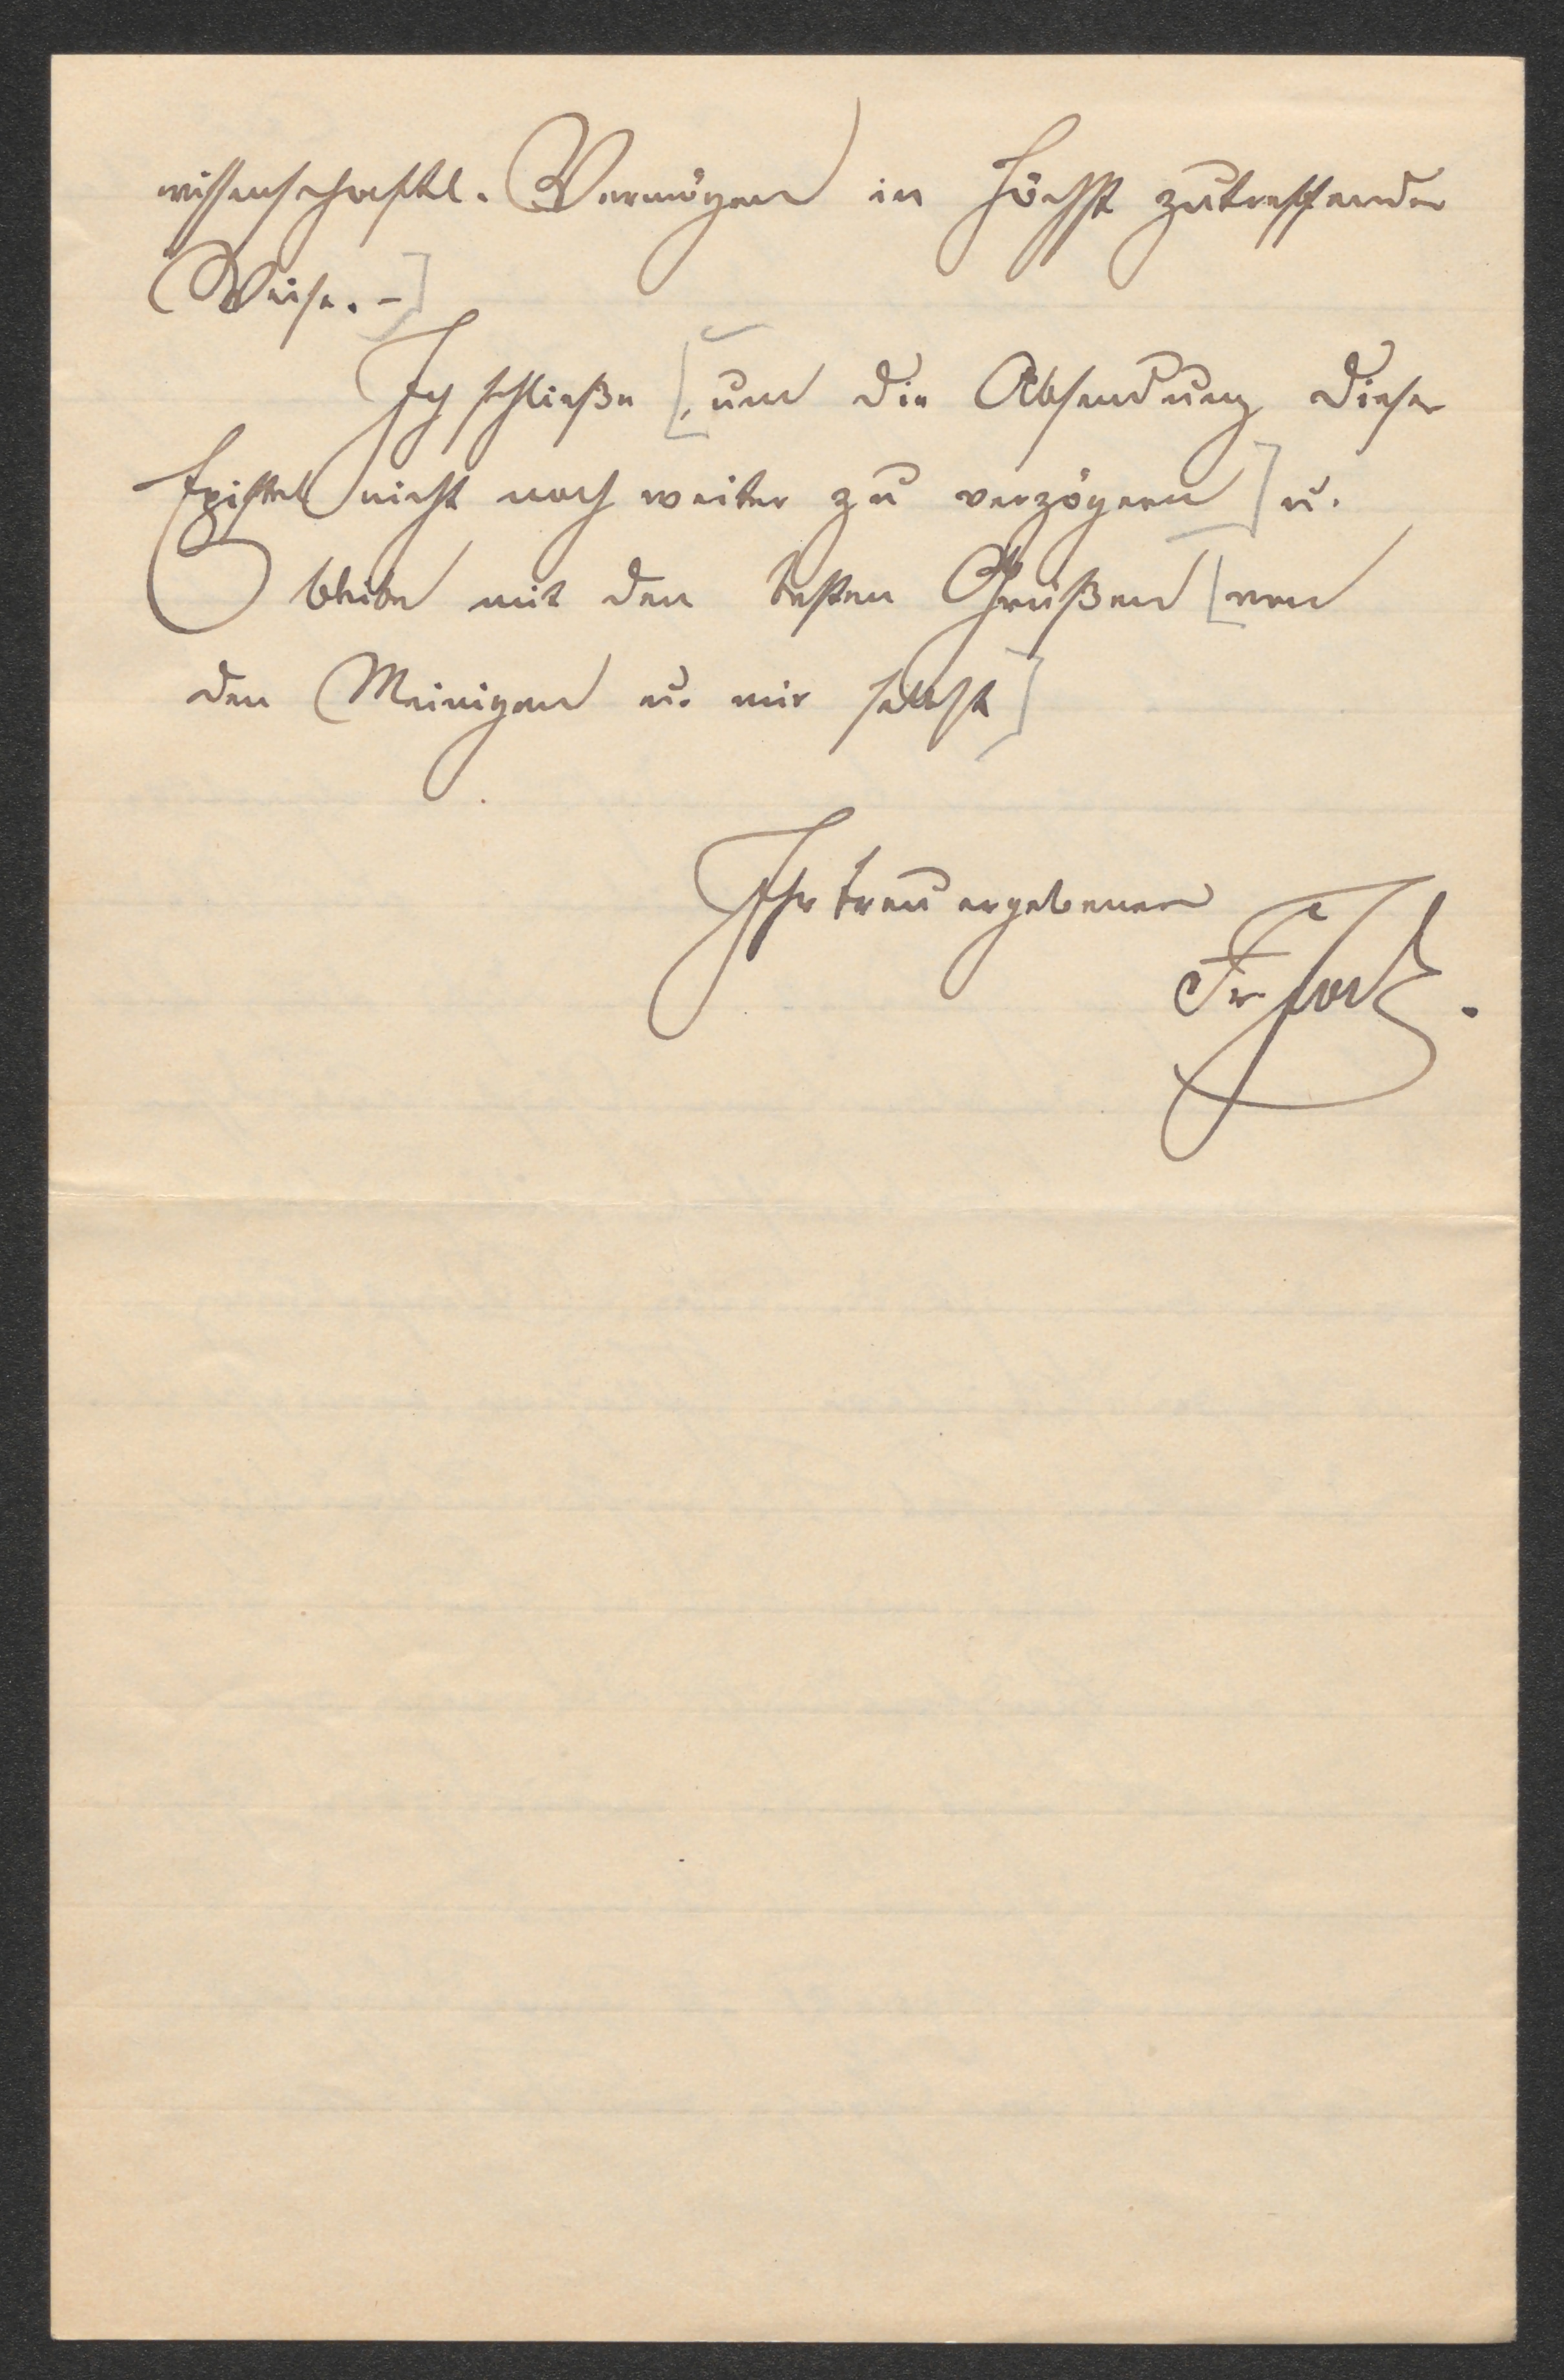 wissenschaftl. Vermögen in höchst zutreffender
Weise. –]
Ich schließe [, um die Absendung dieser
Epistel nicht noch weiter zu verzögern] u.
bleibe mit den besten Grüßen [von
den Meinigen u. mir selbst]
Ihr treu ergebener
Fr.